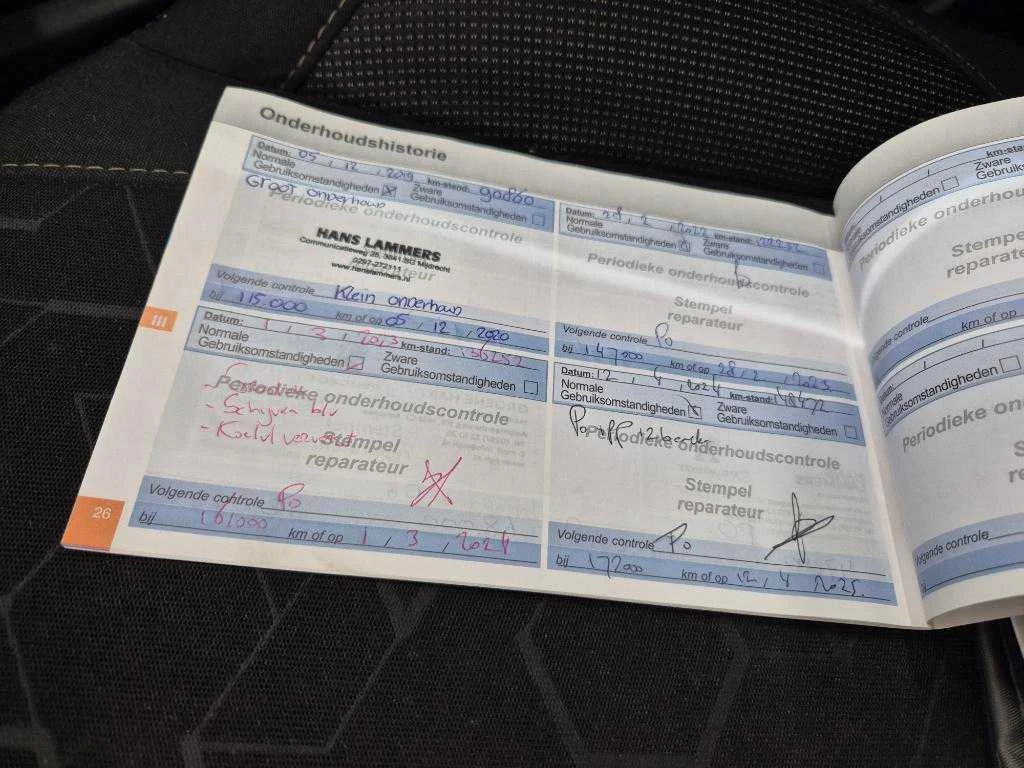 Onderhoudshistorie
Datum: 05, 12, 2019 km-stand:
Normale Gebruiksomstandigheden Zware Gebruiksomstandigheden
Groot onderhoud
Periodieke onderhoudscontrole
HANS LAMMERS
Communicatieweg 28, 3641 SG Mijdrecht
0297-272111
www.hanslammers.nl
Volgende controle Klein onderhoud
bij 115.000 km of op 05, 12, 2020
Datum: 28, 2, 2022 km-stand:
Normale Gebruiksomstandigheden Zware Gebruiksomstandigheden
Periodieke onderhoudscontrole
Stempel
reparateur
Volgende controle Po
bij 147000 km of op 28, 2, 2023
Datum: 1, 3, 2023 km-stand: 136252
Normale Gebruiksomstandigheden Zware Gebruiksomstandigheden
Periodieke onderhoudscontrole
- Schijven
- Koelvl ververst
Stempel
reparateur
Volgende controle Po
bij 161000 km of op 1, 3, 2024
Datum: 12, 4, 2024 km-stand: 148472
Normale Gebruiksomstandigheden Zware Gebruiksomstandigheden
Periodieke onderhoudscontrole
Stempel
reparateur
Volgende controle Po
bij 172000 km of op 12, 4, 2025
III
26
km-sta
Zware
Gebruiksomstandigheden
Periodieke onderhou
Stempe
reparate
Volgende controle
km of op
Datum:
Normale
Gebruiksomstandigheden
Zware
Gebruiks
Periodieke on
Volgende controle